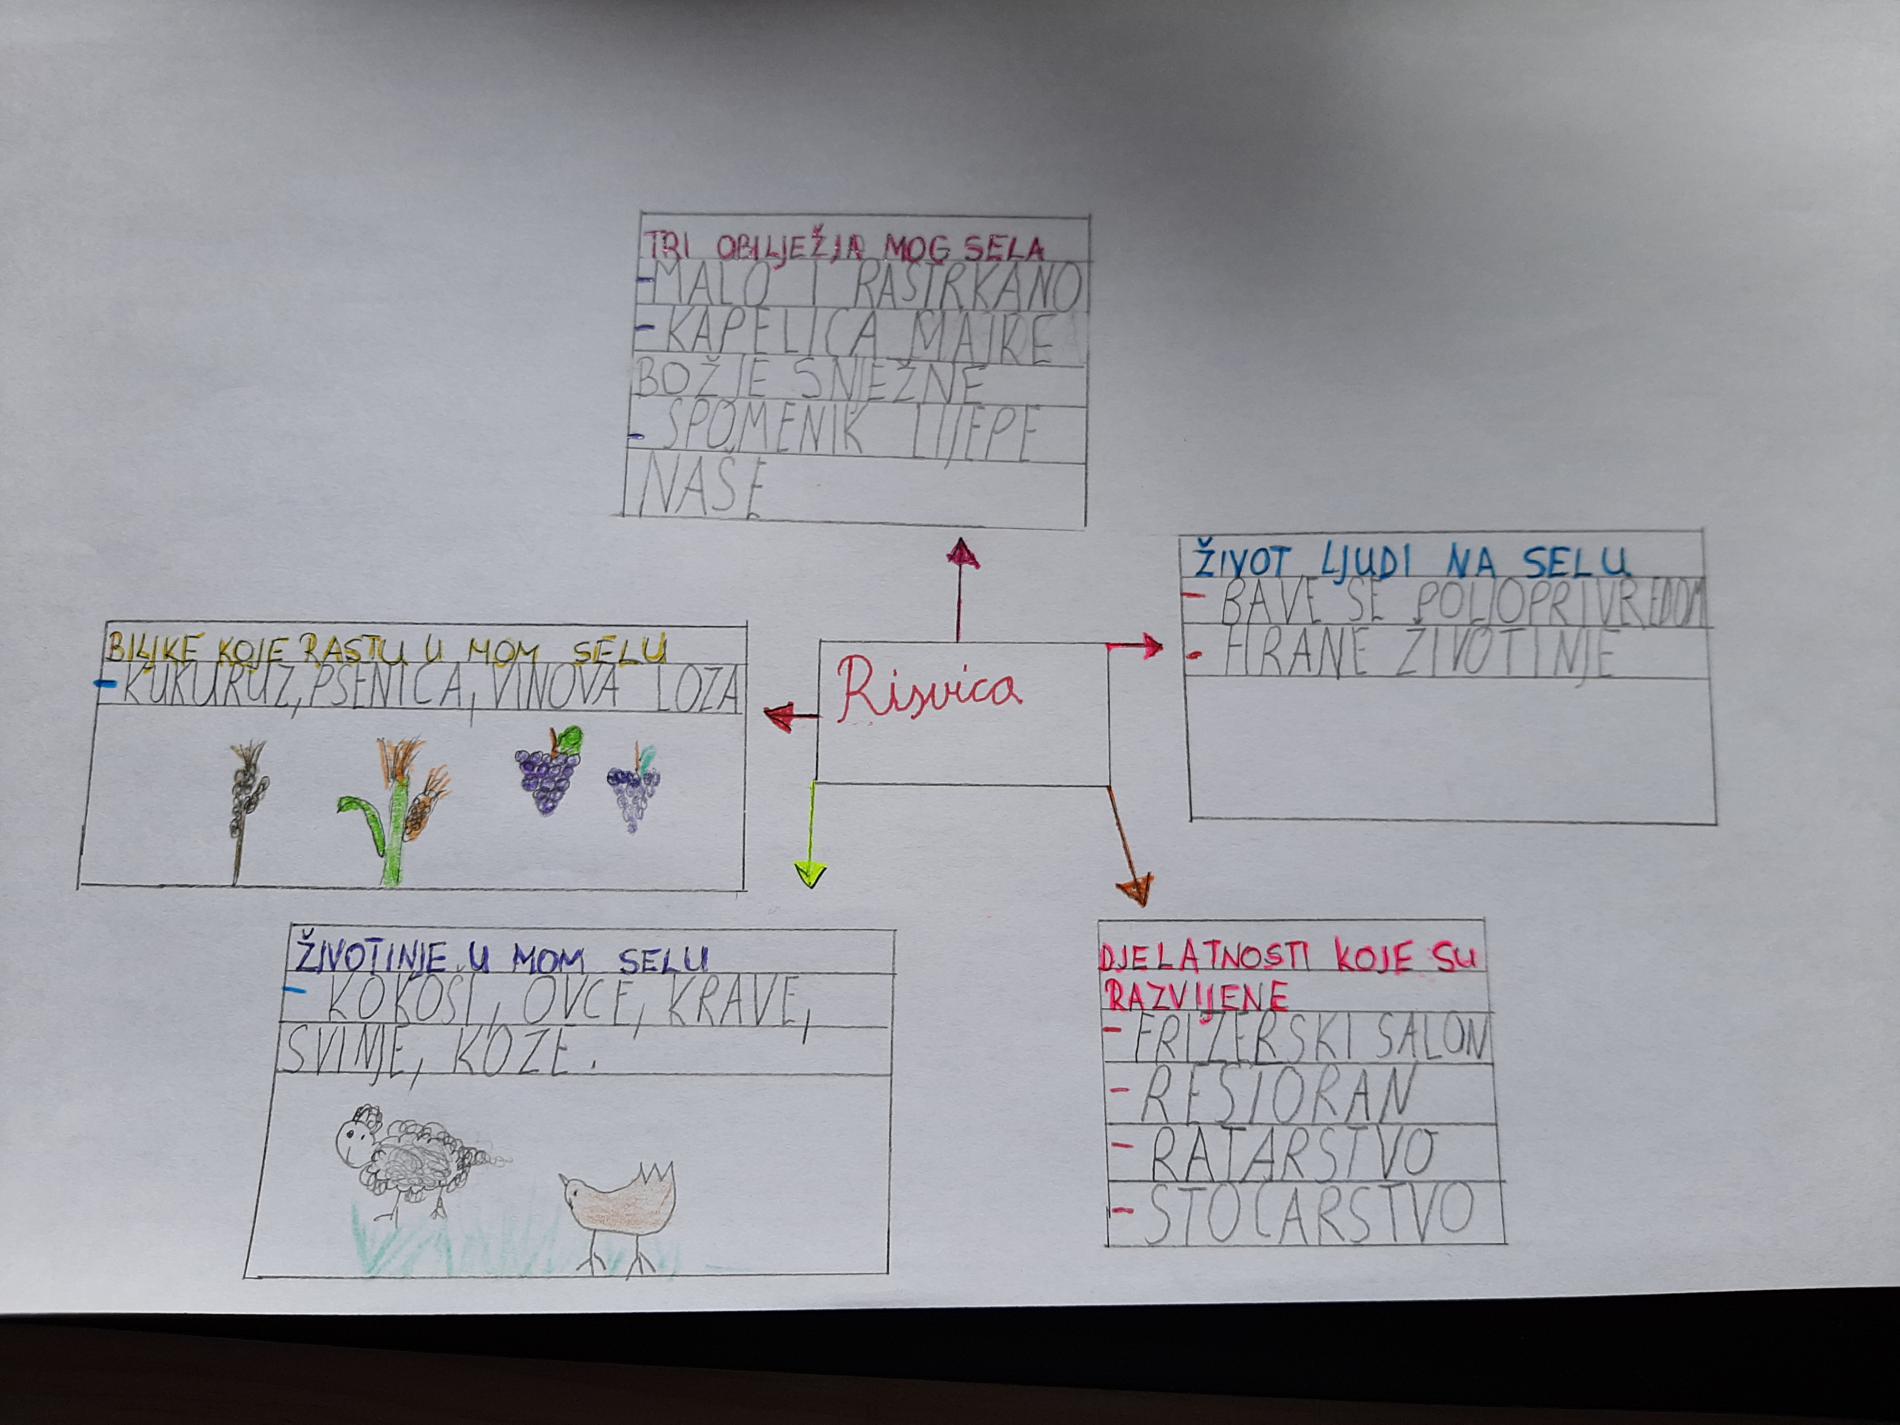 TRI OBILJEŽJA MOG SELA
- MALO I RAŠTRKANO
- KAPELICA MAJKE
BOŽJE SNJEŽNE
- SPOMENIK LIJEPE
NAŠE
ŽIVOT LJUDI NA SELU
- BAVE SE POLJOPRIVREDOM
- HRANE ŽIVOTINJE
BILJKE KOJE RASTU U MOM SELU
- KUKURUZ, PŠENICA, VINOVA LOZA
Risvica
ŽIVOTINJE U MOM SELU
- KOKOŠI, OVCE, KRAVE,
SVINJE, KOZE.
DJELATNOSTI KOJE SU
RAZVIJENE
- FRIZERSKI SALON
- RESTORAN
- RATARSTVO
- STOČARSTVO